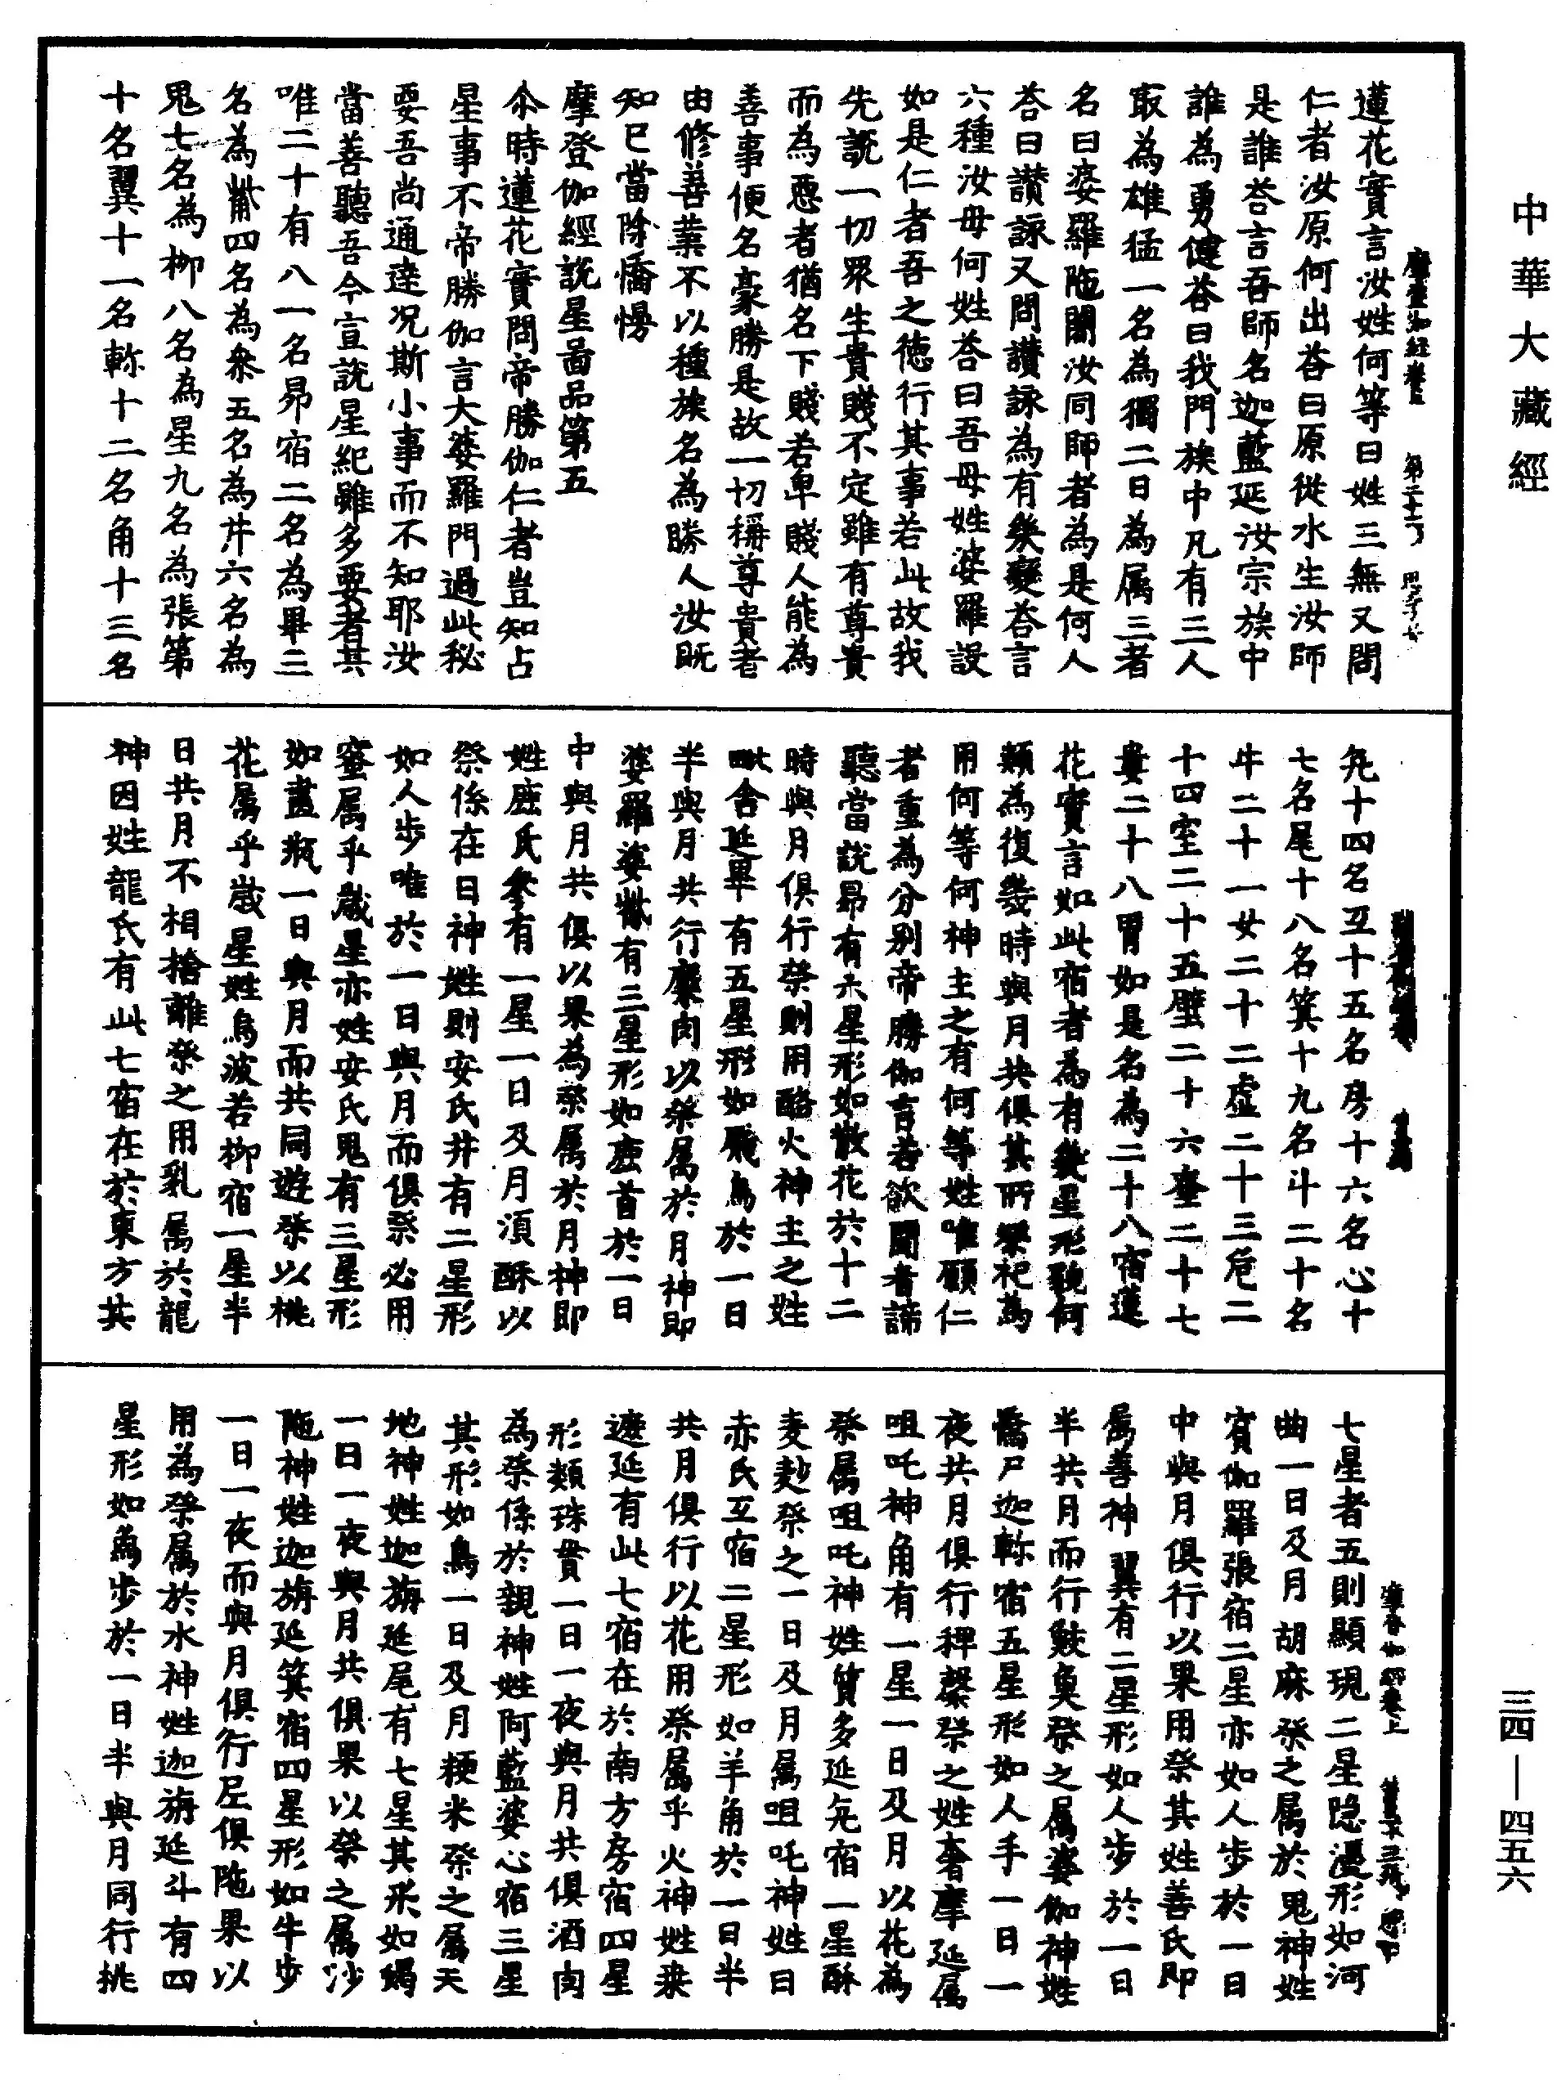 中華大藏經
三四—四五六
蓮花實言汝姓何等曰姓三無又問
仁者汝原何出荅曰原從水生汝師
是誰荅言吾師名迦藍延汝宗族中
誰為勇健荅曰我門族中凡有三人
最為雄猛一名為獨二曰為属三者
名曰婆羅陁闍汝同師者為是何人
荅曰讃詠又問讃詠為有幾變荅言
六種汝母何姓荅曰吾母姓婆羅設
如是仁者吾之徳行其事若此故我
先説一切眾生貴賤不定雖有尊貴
而為惡者猶名下賤若卑賤人能為
善事便名豪勝是故一切稱尊貴者
由修善業不以種族名為勝人汝旣
知已當除憍慢
摩登伽經說星圖品第五
尒時蓮花實問帝勝伽仁者豈知占
星事不帝勝伽言大婆羅門過此秘
要吾尚通達况斯小事而不知耶汝
當善聽吾今宣説星紀雖多要者其
唯二十有八一名昴宿二名為畢三
名為觜四名為参五名為井六名為
鬼七名為柳八名為星九名為張第
十名翼十一名軫十二名角十三名
亢十四名氐十五名房十六名心十
七名尾十八名箕十九名斗二十名
牛二十一女二十二虛二十三危二
十四室二十五壁二十六奎二十七
婁二十八胃如是名為二十八宿蓮
花實言如此宿者為有幾星形貌何
類為復幾時與月共俱其所祭祀為
用何等何神主之有何等姓唯願仁
者重為分别帝勝伽言若欲聞者諦
聽當說昴有六星形如散花於十二
時與月俱行祭則用酪火神主之姓
毗舍延畢有五星形如飛鳥於一日
半與月共行麋肉以祭属於月神即
婆羅婆觜有三星形如鹿首於一日
中與月共俱以果為祭属於月神即
姓鹿氏參有一星一日及月湏酥以
祭係在日神姓則安氏井有二星形
如人步唯於一日與月而俱祭必用
蜜属乎歲星亦姓安氏鬼有三星形
如畫瓶一日與月而共同遊祭以桃
花属乎歲星姓烏波若柳宿一星半
日共月不相捨離祭之用乳属於龍
神因姓龍氏有此七宿在於東方其
七星者五則顯現二星隐沒形如河
曲一日及月胡麻祭之属於鬼神姓
賓伽羅張宿二星亦如人步於一日
中與月俱行以果用祭其姓善氏即
属善神翼有二星形如人步於一日
半共月而行鮫魚祭之属婆伽神姓
憍尸迦軫宿五星形如人手一日一
夜共月俱行稗䅽祭之姓奢摩延属
咀吒神角有一星一日及月以花為
祭属咀吒神姓質多延亢宿一星酥
麦麨祭之一日及月属咀吒神姓曰
赤氏氐宿二星形如羊角於一日半
共月俱行以花用祭属乎火神姓桒
遮延有此七宿在於南方房宿四星
形類珠貫一日一夜與月共俱酒肉
為祭係於親神姓阿藍婆心宿三星
其形如鳥一日及月粳米祭之属天
地神姓迦旃延尾有七星其形如蝎
一日一夜與月共俱果以祭之属沙
陁神姓迦旃延箕宿四星形如牛步
一日一夜而與月俱行尼俱陁果以
用為祭属於水神姓迦旃延斗有四
星形如象步於一日半與月同行桃